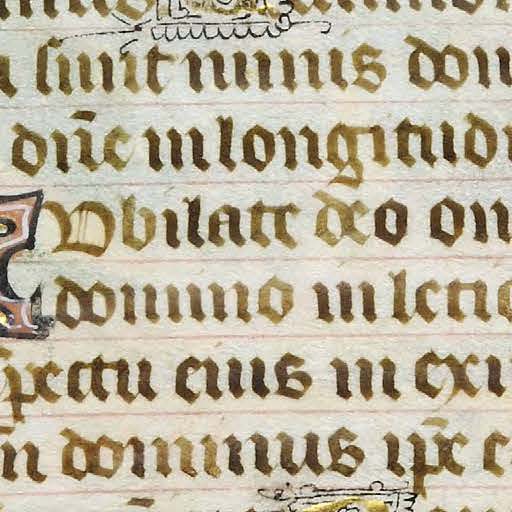 sunt nimis dom
dn̄e in longitudi
Vbilate deo om
domino in letici
spectu eius in exu
dominus ip̄e e